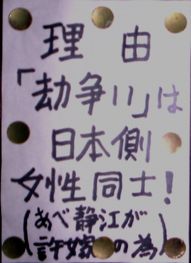 理由
「劫争い」は
日本側
女性同士!
(あべ静江が
許嫁の為)